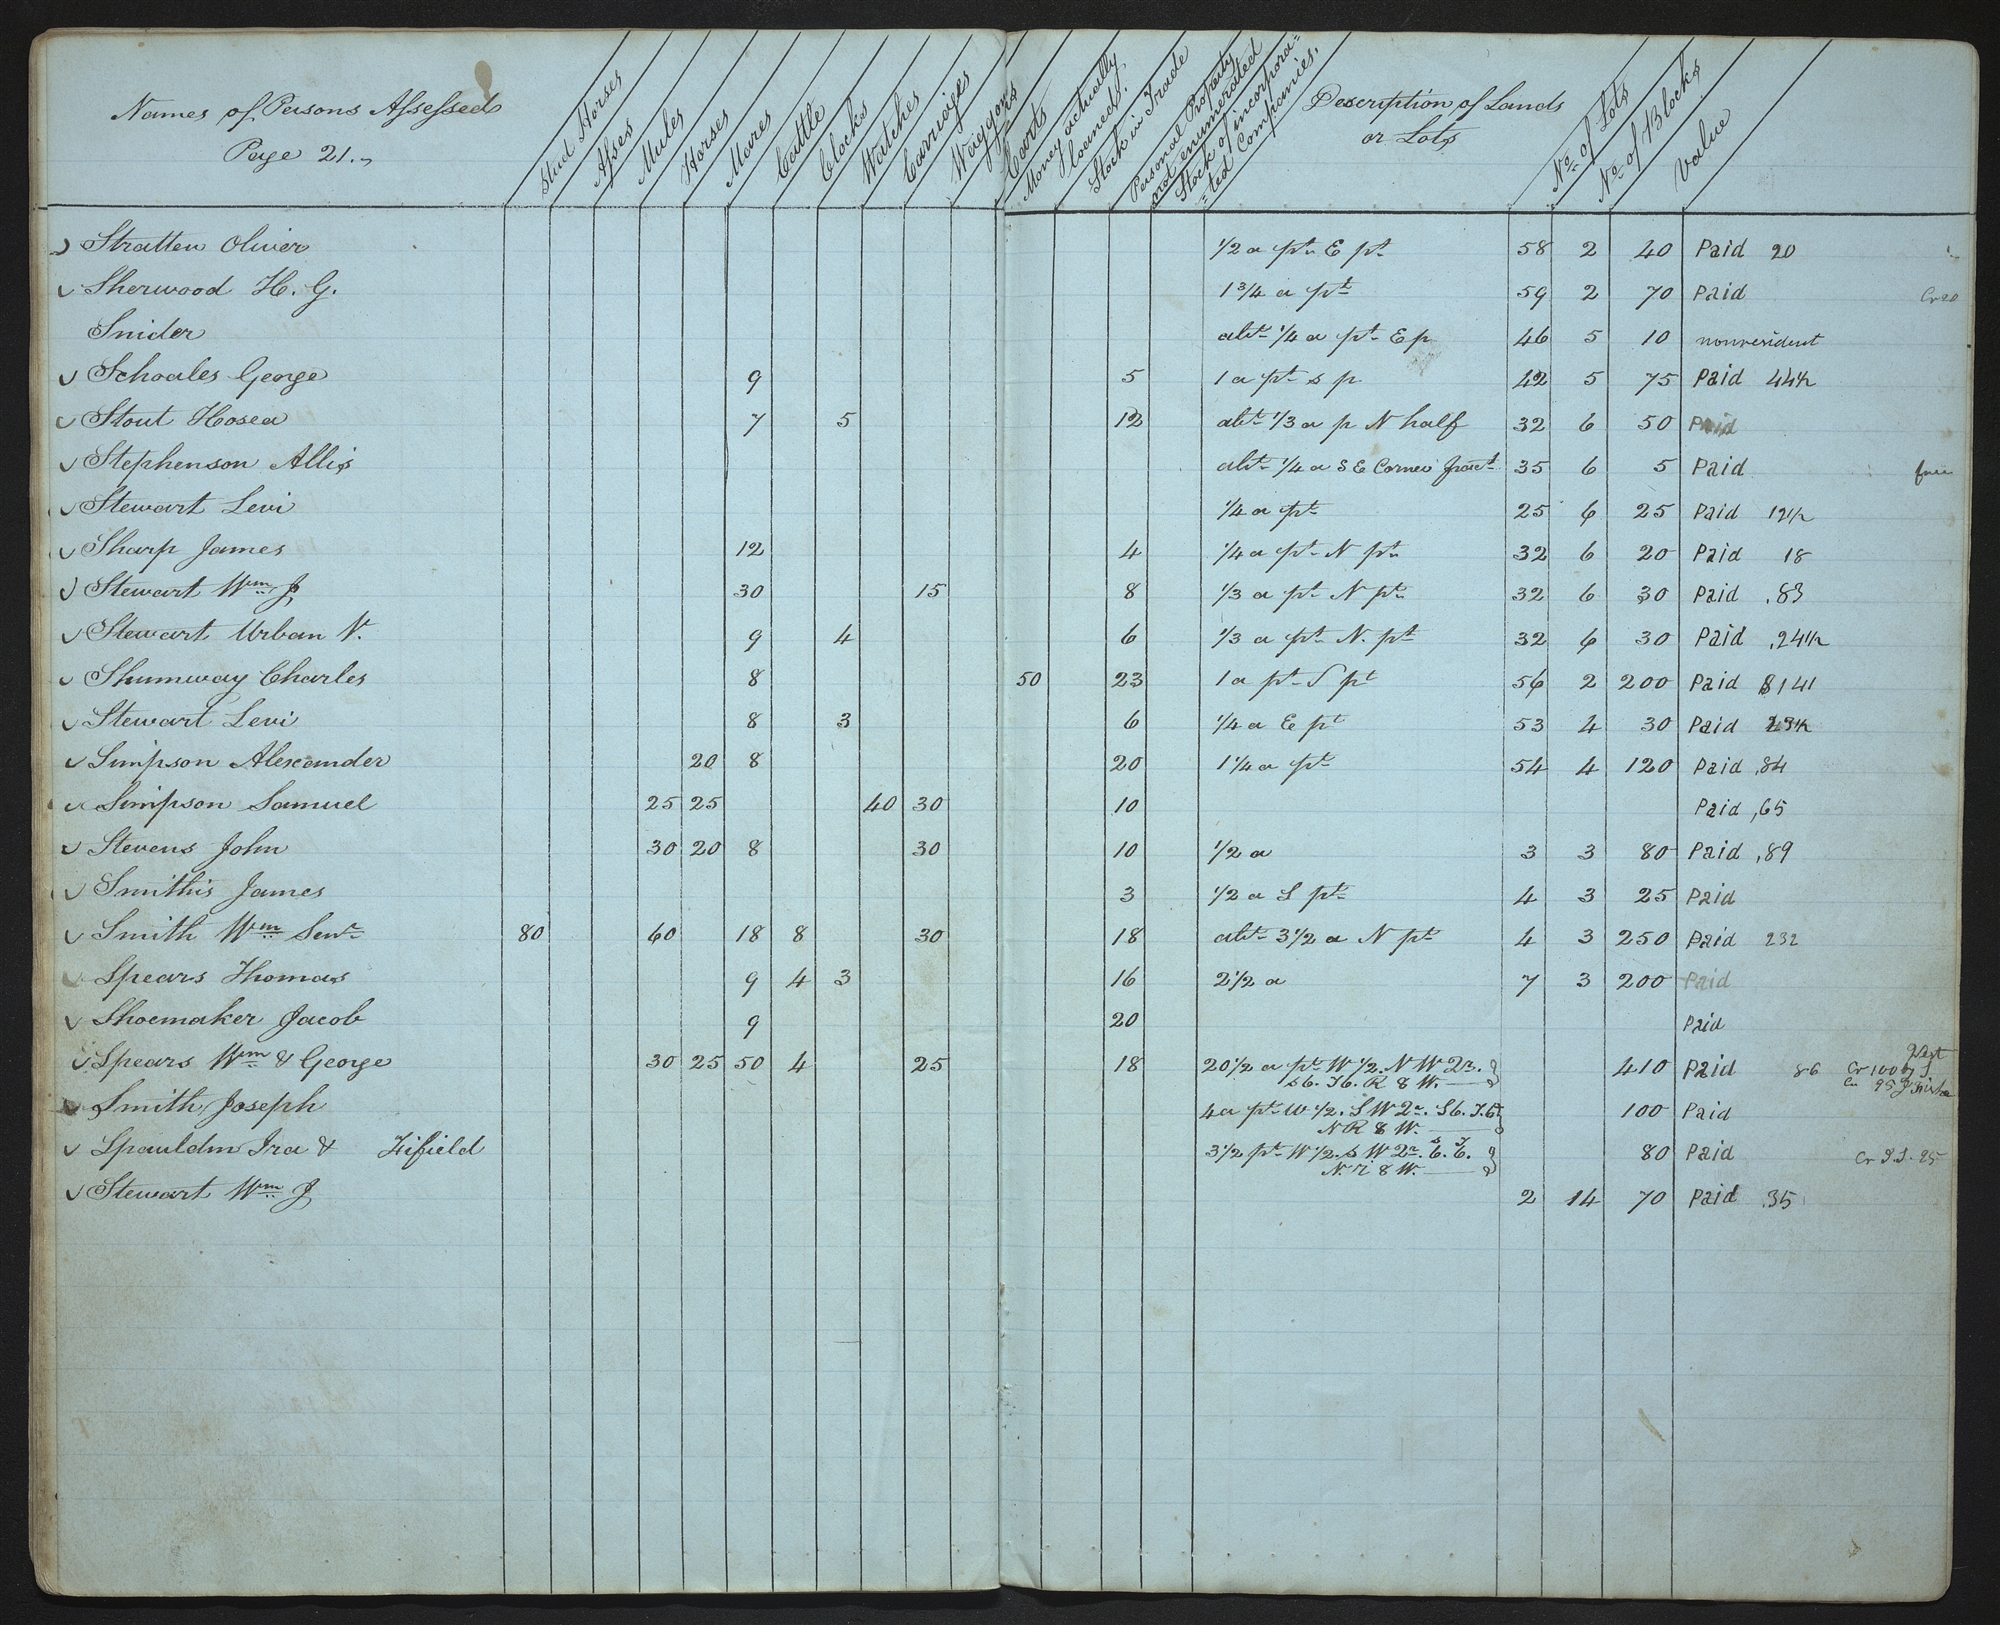 Names of Persons Assessed
Page 21.
Stud Horses
Asses
Mules
Horses
Mares
Cattle
Clocks
Watches
Carriages
Waggons
Carts
Money actually loaned.
Stock in Trade
Personal Property not enumerated
Stock of incorpora=
=ted Companies.
Description of Lands
or Lots
No. of Lots
No. of Blocks
Value
Stratten Oliver 1/2 a pt E pt 58 2 40 Paid 20
Sherwood H. G. 1 3/4 a pt 59 2 70 Paid Cr 20
Snider abt 1/4 a pt E p 46 5 10 nonresident
Schoales George 9 5 1 a pt S p 42 5 75 Paid 44 1/2
Stout Hosea 7 5 12 abt 1/3 a p N half 32 6 50 Paid
Stephenson Allis abt 1/4 a S E Corner fract 35 6 5 Paid
Stewart Levi 1/4 a pt 25 6 25 Paid 12 1/2
Sharp James 12 4 1/4 a pt N pt 32 6 20 Paid 18
Stewart Wm J 30 15 8 1/3 a pt N pt 32 6 30 Paid .83
Stewart Urban V. 9 4 6 1/3 a pt N. pt 32 6 30 Paid .24 1/2
Shumway Charles 8 50 23 1 a pt S pt 56 2 200 Paid $1 41
Stewart Levi 8 3 6 1/4 a E pt 53 4 30 Paid 23 1/2
Simpson Alexander 20 8 20 1 1/4 a pt 54 4 120 Paid .84
Simpson Samuel 25 25 40 30 10 Paid ,65
Stevens John 30 20 8 30 10 1/2 a 3 3 80 Paid .89
Smithis James 3 1/2 a S pt 4 3 25 Paid
Smith Wm Senr 80 60 18 8 30 18 abt 3 1/2 a N pt 4 3 250 Paid 232
Spears Thomas 9 4 3 16 2 1/2 a 7 3 200 Paid
Shoemaker Jacob 9 20 Paid
Spears Wm & George 30 25 50 4 25 18 20 1/2 a pt W 1/2. N W 2r. 410 Paid 86 Cr 100 by
S 6. T 6. R 8 W.
Smith Joseph 4 a pt W 1/2. S W 2r. S 6. T. 6 100 Paid
N R 8 W.
Spauldin Ira & Fifield 3 1/2 pt W 1/2. S W 2r. S 6. T 6. 80 Paid Cr
N. r 8 W.
Stewart Wm J 2 14 70 Paid .35